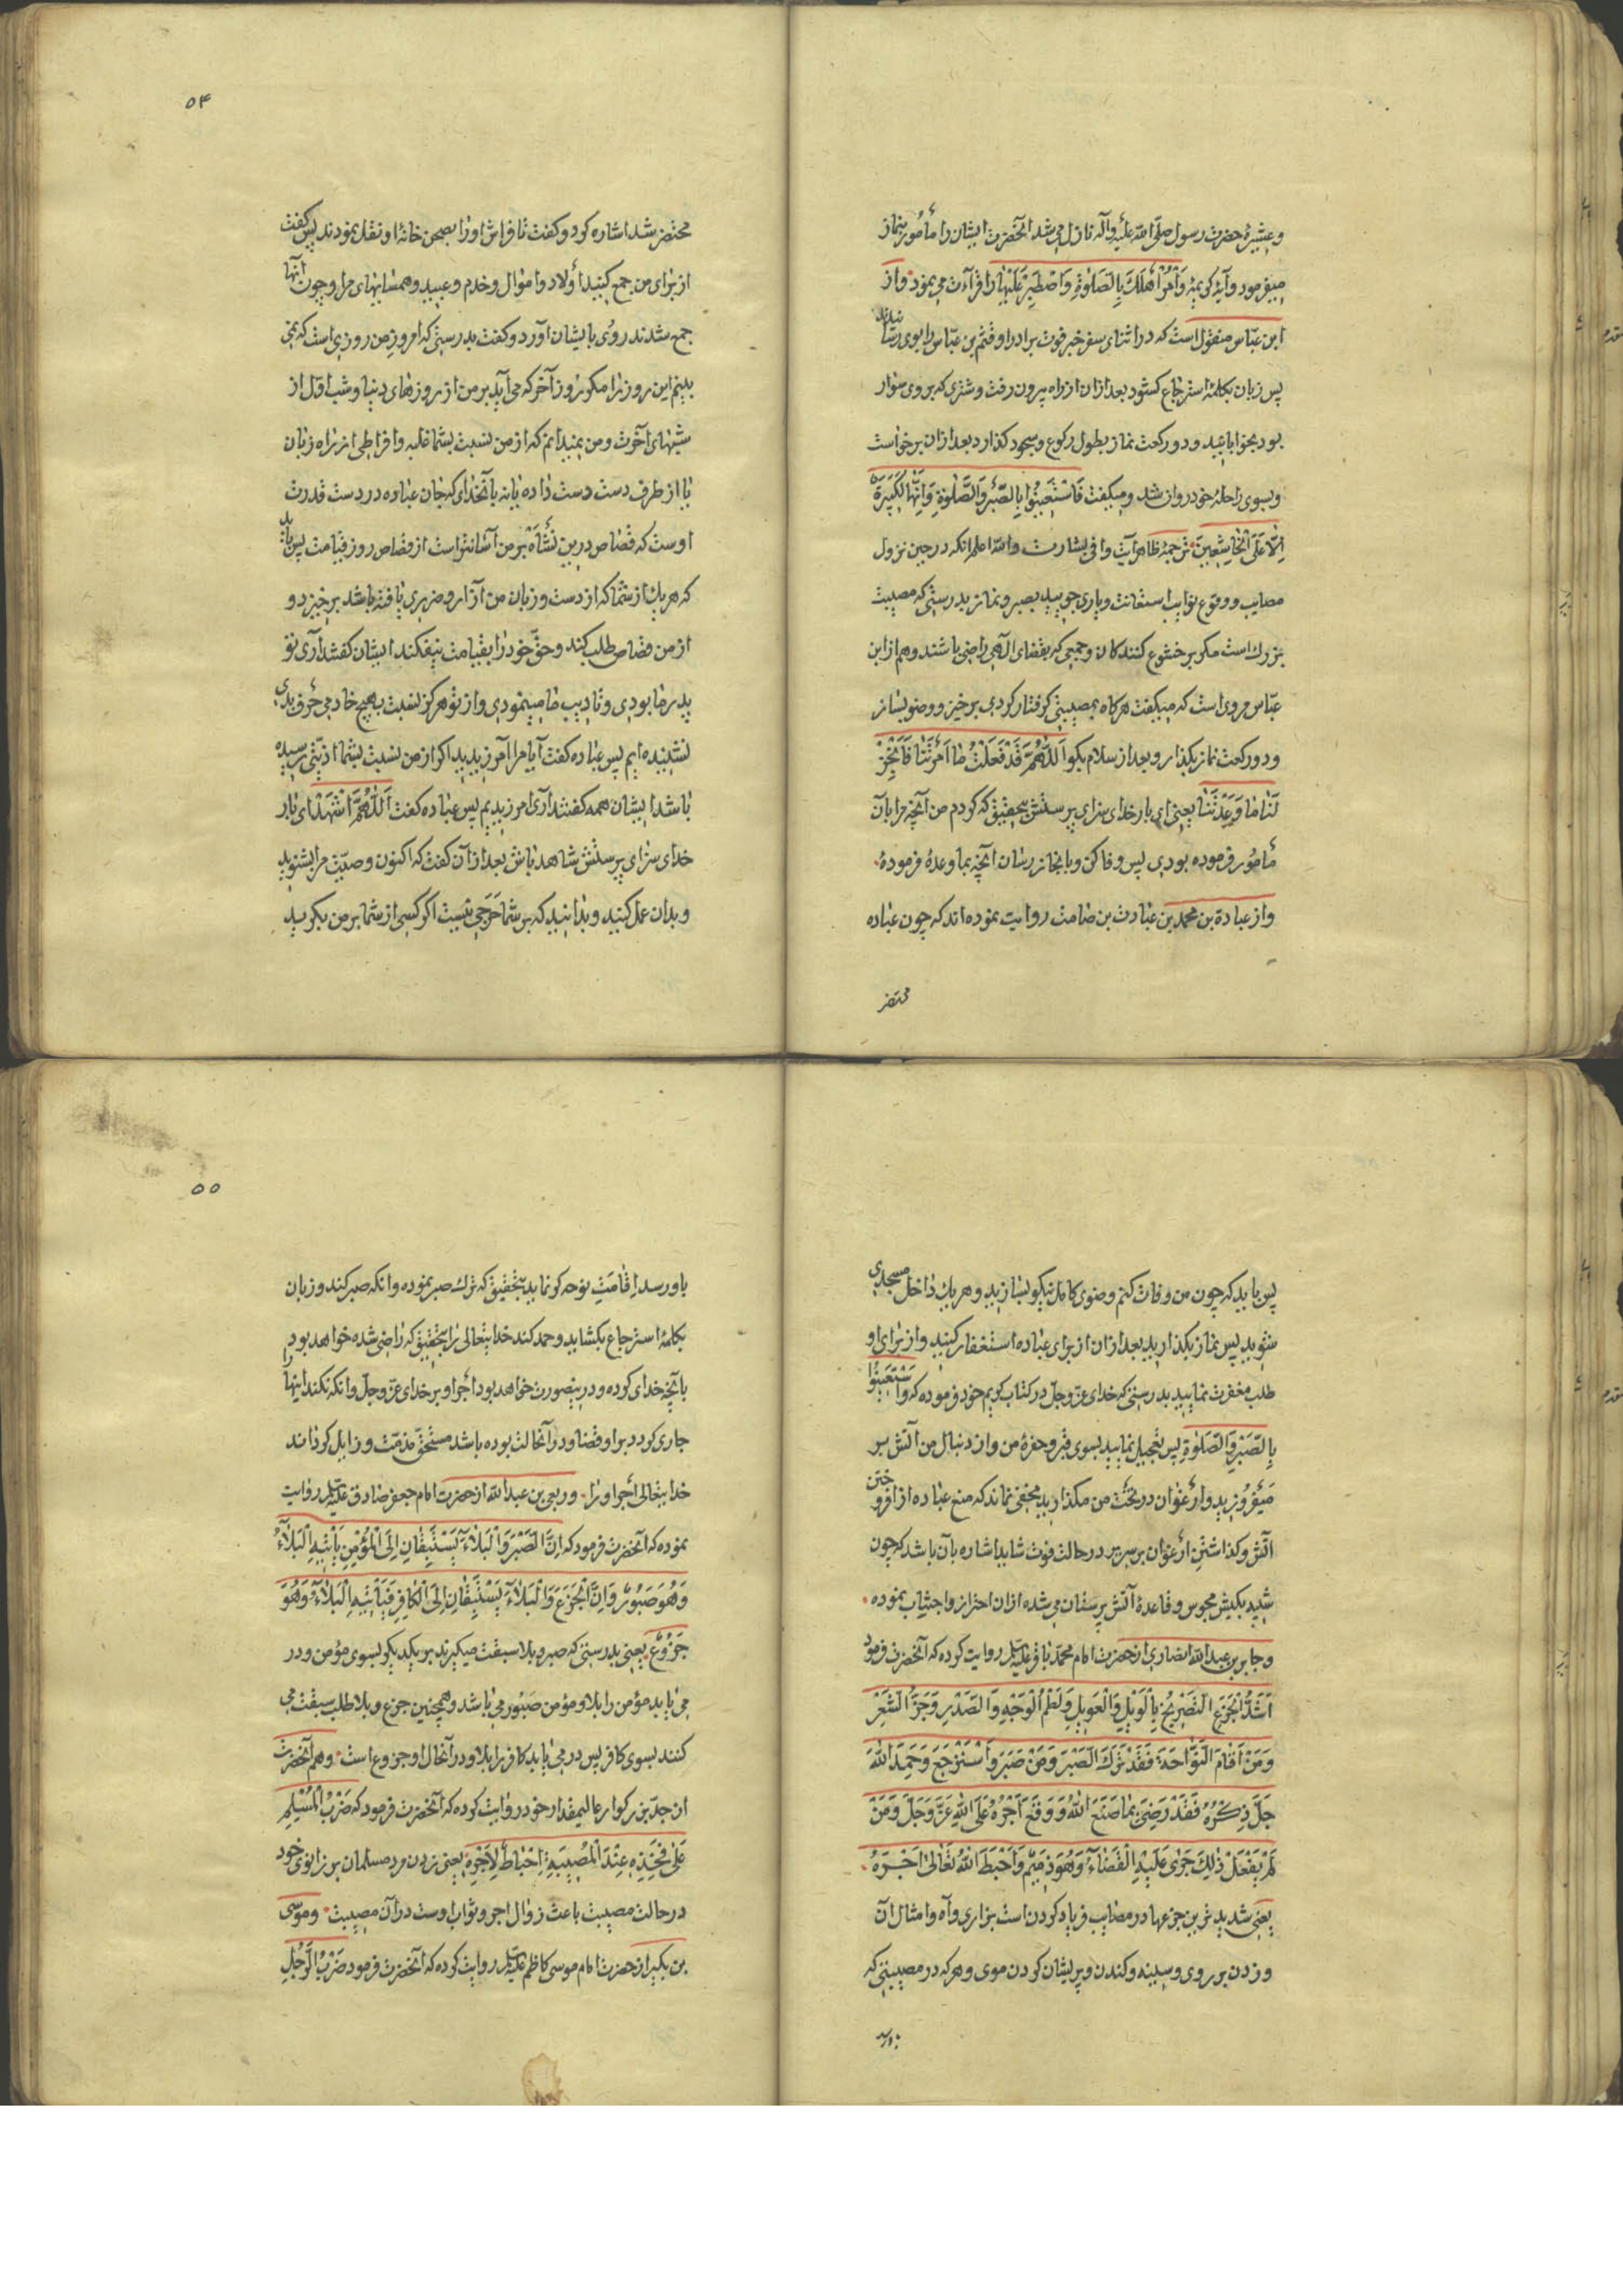 و عشیرهٔ حضرت رسول صلّی الله علیه وآله نازل می شد آنحضرت ایشان را مأمور بنماز
میفرمود وآیهٔ کریمهٔ وَأْمُرْ أَهْلَكَ بِالصَّلوٰةِ وَاصْطَبِرْ عَلَیْهٰا را قرآءت می نمود واز
ابن عبّاس منقول است که در اثنای سفر خبر فوت برادر او قثم بن عبّاس را بوی رسانیدند
پس زبان بکلمهٔ استرجاع کشود بعد ازان از راه بیرون رفت و شتری که بر وی سوار
بود بخوابانید و دو رکعت نماز بطول رکوع و سجود کذارد بعد ازان برخواست
و بسوی راحلهٔ خود روان شد و میکفت فَاسْتَعینُوا بِالصَّبْرِ وَالصَّلوٰةِ وَاِنَّهٰا لَكَبیرَةٌ
اِلّا عَلَی الْخٰاشِعینَ ترجمهٔ ظاهر آیت وافی بشارت والله اعلم انکه در حین نزول
مصایب و وقوع نوایب استعانت و یاری جویید بصبر و نماز بدرستی که مصیبت
بزرك است مکر بر خشوع کنندکان و جمعی که بقضای آلهی راضی باشند و هم از ابن
عبّاس مروی است که میکفت هرکاه بمصیبتی کرفتار کردی برخیز و وضو بساز
و دو رکعت نماز بکذار و بعد از سلام بکو اَللّٰهُمَّ قَدْ فَعَلْتُ مٰا اَمَرْتَنٰا فَاَنْجِزْ
لَنٰا مٰا وَعَدْتَنٰا یعنی ای بار خدای سزای پرستش بتحقیق که کردم من آنچه مرا بآن
مأمور فرموده بودی پس وفا کن و بانجاز رسان آنچه بما وعده فرمودهٔ
واز عبادة بن محمد بن عبادت بن صامت روایت نموده اند که چون عباده
محتضر
۵۴
محتضر شد اشاره کرد و کفت تا فراش او را بصحن خانهٔ او نقل نمودند پس کفت
از برای من جمع کنید اولاد و اموال و خدم و عبید و همسایهای مرا و چون آنها
جمع شدند روی بایشان آورد و کفت بدرستی که امروز من روزی است که نمی
بینم این روز را مکر روز آخر که می آید بر من از روزهای دنیا و شب اوّل از
شبهای آخرت و من نمیدانم که از من نسبت بشما غلبه و افراطی از راه زبان
یا از طرف دست دست داده یا نه بآنخدای که جان عباده در دست قدرت
اوست که قصاص درین نشأه بر من آسانتر است از قصاص روز قیامت پس باید
که هر یك از شما که از دست و زبان من آزار و ضرری یافته باشد برخیزد و
از من قصاص طلب کند و حقّ خود را بقیامت نیفکند ایشان کفتند آری تو
پدر ما بودی و تادیب ما مینمودی و از تو هرکز نسبت بهیچ خادمی حرف بدی
نشنیده ایم پس عباده کفت آیا مرا آمرزیدید اکر از من نسبت بشما اذیّتی رسیده
باشد ایشان همه کفتند آری امرزیدیم پس عباده کفت اَللّٰهُمَّ اشْهَدْ ای بار
خدای سزای پرستش شاهد باش بعد از آن کفت که اکنون وصیّت مرا بشنوید
و بدان عمل کنید و بدانید که بر شما حَرَجی نیست اکر کسی از شما بر من بکرید
پس باید که چون من وفات کنم وضوی کامل نیکو بسازید و هر یك داخل مسجدی
شوید پس نماز بکذارید بعد ازان از برای عباده استغفار کنید و از برای او
طلب مغفرت نمایید بدرستی که خدای عزّ وجلّ در کتاب کریم خود فرموده که وَاسْتَعینُوا
بِالصَّبْرِ وَالصَّلوٰةِ پس تعجیل نمایید بسوی قبر و حفرهٔ من و از دنبال من آتش بر
میفروزید و ارغوان در تحت من مکذارید مخفی نماند که منع عباده از افروختن
آتش و کذاشتن ارغوان بر سریر در حالت فوت شاید اشاره بآن باشد که چون
شبیه بکیش مجوس و قاعدهٔ آتش پرستان می شده ازان احتراز و اجتناب نموده
و جابر بن عبد الله انصاری از حضرت امام محمّد باقر علیه السلم روایت کرده که آنحضرت فرمود
اَشَدُّ الْجَزَعِ الصّریخُ بِالْوَیْلِ وَالْعَویلِ وَلَطْمُ الْوَجْهِ وَالصَّدْرِ وَجَزُّ الشَّعْرِ
وَمَنْ اَقٰامَ النَّوّٰاحَةَ فَقَدْ تَرَكَ الصَّبْرَ وَمَنْ صَبَرَ وَاسْتَرْجَعَ وَحَمِدَ اللّٰهَ
جَلَّ ذِكْرُهُ فَقَدْ رَضِیَ بِمٰا صَنَعَ اللّٰهُ وَوَقَعَ اَجْرُهُ عَلَی اللّٰهِ عَزَّ وَجَلَّ وَمَنْ
لَمْ یَفْعَلْ ذٰلِكَ جَرٰی عَلَیْهِ الْقَضٰآءُ وَهُوَ ذَمیمٌ وَاَحْبَطَ اللّٰهُ تَعٰالٰی اَجْرَهُ
یعنی شدیدترین جزعها در مصایب فریاد کردن است بزاری و آه و امثال آن
و زدن بر روی و سینه و کندن و پریشان کردن موی و هرکه در مصیبتی که
۵۵
باو رسد اِقامَتِ نوحه کر نماید بتحقیق که ترك صبر نموده و انکه صبر کند و زبان
بکلمهٔ استرجاع بکشاید و حمد کند خدایتعالی را بتحقیق که راضی شده خواهد بود
بآنچه خدای کرده و درینصورت خواهد بود اجر او بر خدای عزّ وجلّ و انکه نکند اینها را
جاری کردد بر او قضا و در آنحالت بوده باشد مستحقّ مذمّت و زایل کرداند
خدایتعالی اجر او را و ربعی بن عبد الله از حضرت امام جعفر صادق علیه السلم روایت
نموده که آنحضرت فرمود که اِنَّ الصَّبْرَ وَالْبَلٰآءَ یَسْتَبِقٰانِ اِلَی الْمُؤْمِنِ یَأْتیهِ الْبَلٰآءُ
وَهُوَ صَبُورٌ وَاِنَّ الْجَزَعَ وَالْبَلٰآءَ یَسْتَبِقٰانِ اِلَی الْكٰافِرِ فَیَأْتیهِ الْبَلٰآءُ وَهُوَ
جَزُوعٌ یعنی بدرستی که صبر و بلا سبقت میکیرند بر یکدیکر بسوی مؤمن و در
می یابد مؤمن را بلا و مؤمن صبور می باشد و همچنین جزع و بلا طلب سبقت می
کنند بسوی کافر پس در می یابد کافر را بلا و در آنحال او جزوع است و هم آنحضرت
از جدّ بزرکوار عالیمقدار خود روایت کرده که آنحضرت فرمود که ضَرْبُ الْمُسْلِمِ
عَلٰی فَخِذِهِ عِنْدَ الْمُصیبَةِ اِحْبٰاطٌ لِاَجْرِهِ یعنی زدن مرد مسلمان بر زانوی خود
در حالت مصیبت باعث زوال اجر و ثواب اوست در آن مصیبت و موسی
بن بکیر از حضرت امام موسی کاظم علیه السلم روایت کرده که آنحضرت فرمود ضَرْبُ الرَّجُلِ